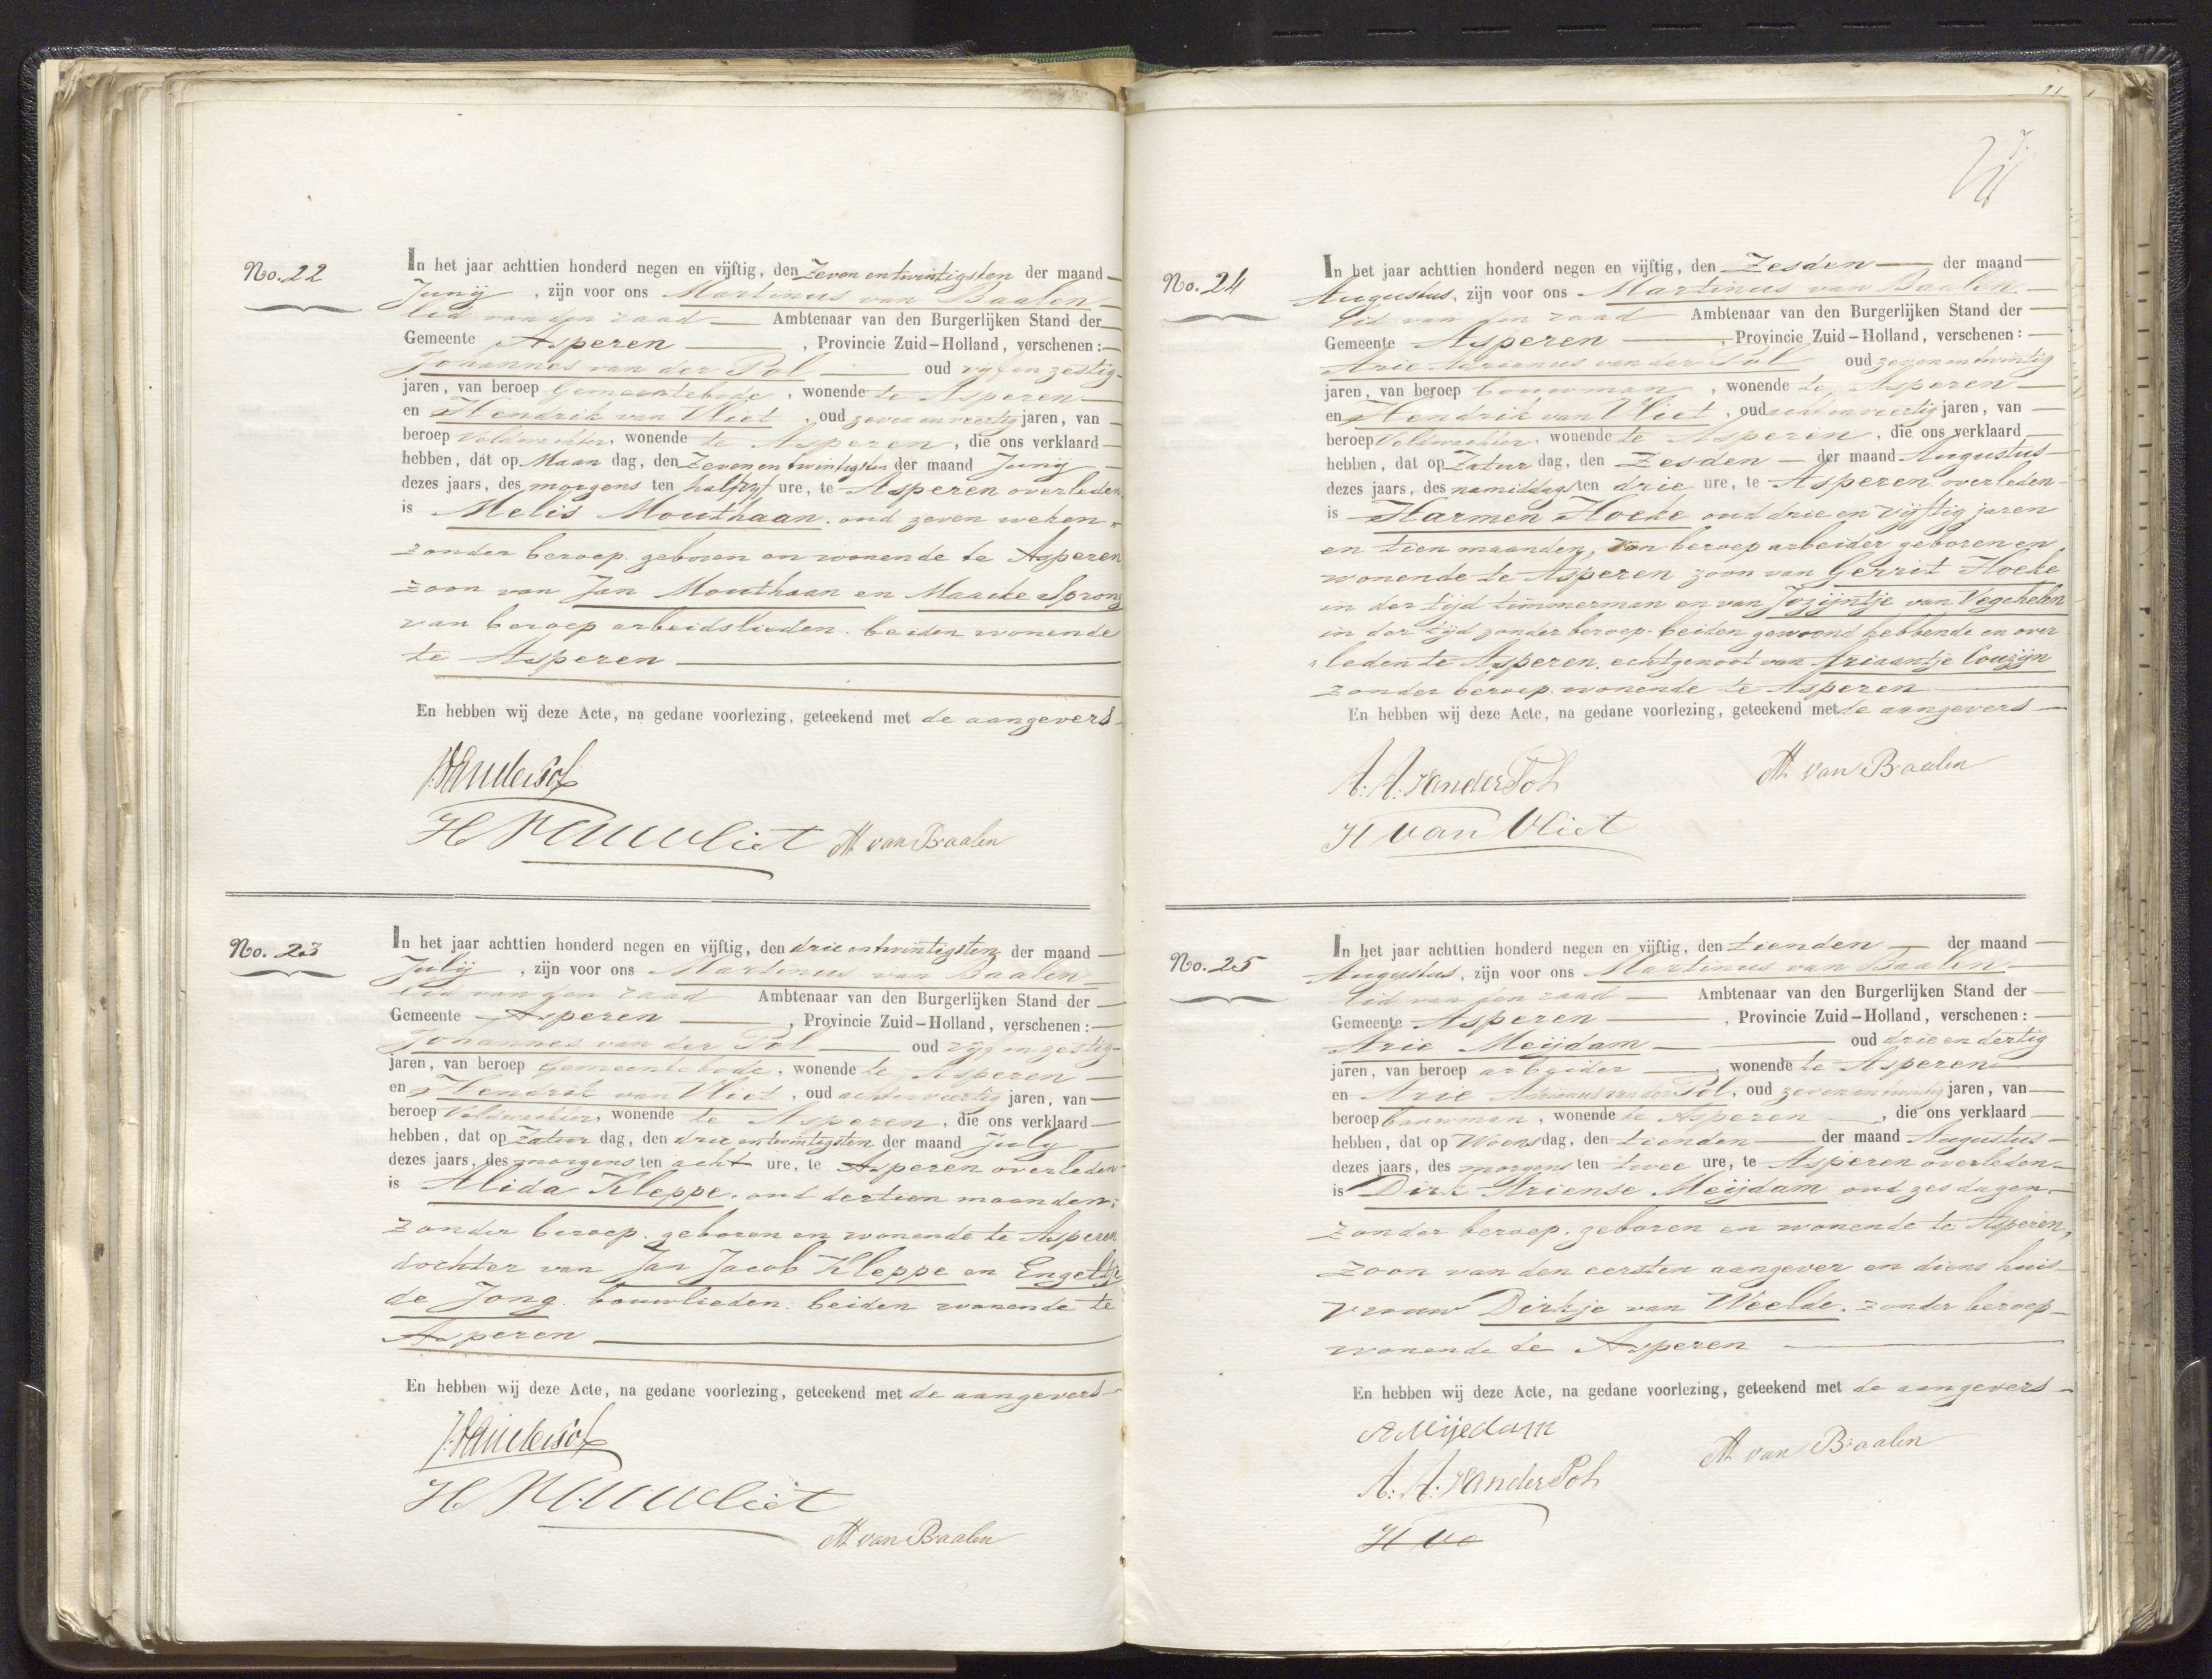 No. 22
In het jaar achttien honderd negen en vijftig, den Zeven en twintigsten der maand
Junij, zijn voor ons Martinus van Baalen
lid van den raad Ambtenaar van den Burgerlijken Stand der
Gemeente Asperen, Provincie Zuid-Holland, verschenen:
Johannes van der Pol oud vijf en zestig
jaren, van beroep Gemeentebode, wonende te Asperen
en Hendrik van Vliet, oud zeven en veertig jaren, van
beroep Veldwachter, wonende te Asperen, die ons verklaard
hebben, dat op Maan dag, den Zeven en twintigsten der maand Junij
dezes jaars, des morgens ten half vijf ure, te Asperen overleden
is Melis Mouthaan. oud zeven weken.
zonder beroep. geboren en wonende te Asperen
zoon van Jan Mouthaan en Maaike Sprong
van beroep arbeidslieden. beiden wonende
te Asperen
En hebben wij deze Acte, na gedane voorlezing, geteekend met de aangevers
J. van der Pol
H van vliet M van Baalen
No. 23
In het jaar achttien honderd negen en vijftig, den drie en twintigsten der maand
Julij, zijn voor ons Martinus van Baalen
lid van den raad Ambtenaar van den Burgerlijken Stand der
Gemeente Asperen, Provincie Zuid-Holland, verschenen:
Johannes van der Pol oud vijf en zestig
jaren, van beroep Gemeentebode, wonende te Asperen
en Hendrik van Vliet, oud acht en veertig jaren, van
beroep Veldwachter, wonende te Asperen, die ons verklaard
hebben, dat op Zatur dag, den drie en twintigsten der maand July
dezes jaars, des morgens ten acht ure, te Asperen overleden
is Alida Kleppe. oud dertien maanden,
zonder beroep. geboren en wonende te Asperen
dochter van Jan Jacob Kleppe en Engeltje
de Jong. bouwlieden. beiden wonende te
Asperen
En hebben wij deze Acte, na gedane voorlezing, geteekend met de aangevers
J. van der Pol
H van vliet
M van Baalen
No. 24
In het jaar achttien honderd negen en vijftig, den Zesden der maand
Augustus, zijn voor ons Martinus van Baalen
lid van den raad Ambtenaar van den Burgerlijken Stand der
Gemeente Asperen, Provincie Zuid-Holland, verschenen:
Arie Adrianus van der Pol oud zeven en twintig
jaren, van beroep bouwman, wonende te Asperen
en Hendrik van Vliet, oud acht en veertig jaren, van
beroep Veldwachter, wonende te Asperen, die ons verklaard
hebben, dat op Zatur dag, den Zesden der maand Augustus
dezes jaars, des namiddags ten drie ure, te Asperen overleden
is Harmen Hoeke oud drie en vijftig jaren
en tien maanden, van beroep arbeider geboren en
wonende te Asperen zoon van Gerrit Hoeke
in der tijd timmerman en van Jozijntje van Vegchelen
in der tijd zonder beroep. beiden gewoond hebbende en over
leden te Asperen. echtgenoot van Ariaantje Couzijn
zonder beroep. wonende te Asperen
En hebben wij deze Acte, na gedane voorlezing, geteekend met de aangevers
A. A. van der Pol M van Baalen
H van Vliet
No. 25
In het jaar achttien honderd negen en vijftig, den tienden der maand
Augustus, zijn voor ons Martinus van Baalen
lid van den raad Ambtenaar van den Burgerlijken Stand der
Gemeente Asperen, Provincie Zuid-Holland, verschenen:
Arie Meijdam oud drie en dertig
jaren, van beroep arbeider, wonende te Asperen
en Arie Adrianus van der Pol, oud zeven en twintig jaren, van
beroep bouwman, wonende te Asperen, die ons verklaard
hebben, dat op Woens dag, den tienden der maand Augustus
dezes jaars, des morgens ten twee ure, te Asperen overleden
is Dirk Ariense Meijdam oud zes dagen.
zonder beroep. geboren en wonende te Asperen,
zoon van den eersten aangever en diens huis
vrouw Dirkje van Weelde. zonder beroep
wonende te Asperen
En hebben wij deze Acte, na gedane voorlezing, geteekend met de aangevers
A Mijedam
M van Baalen
A. A. van der Pol
H va